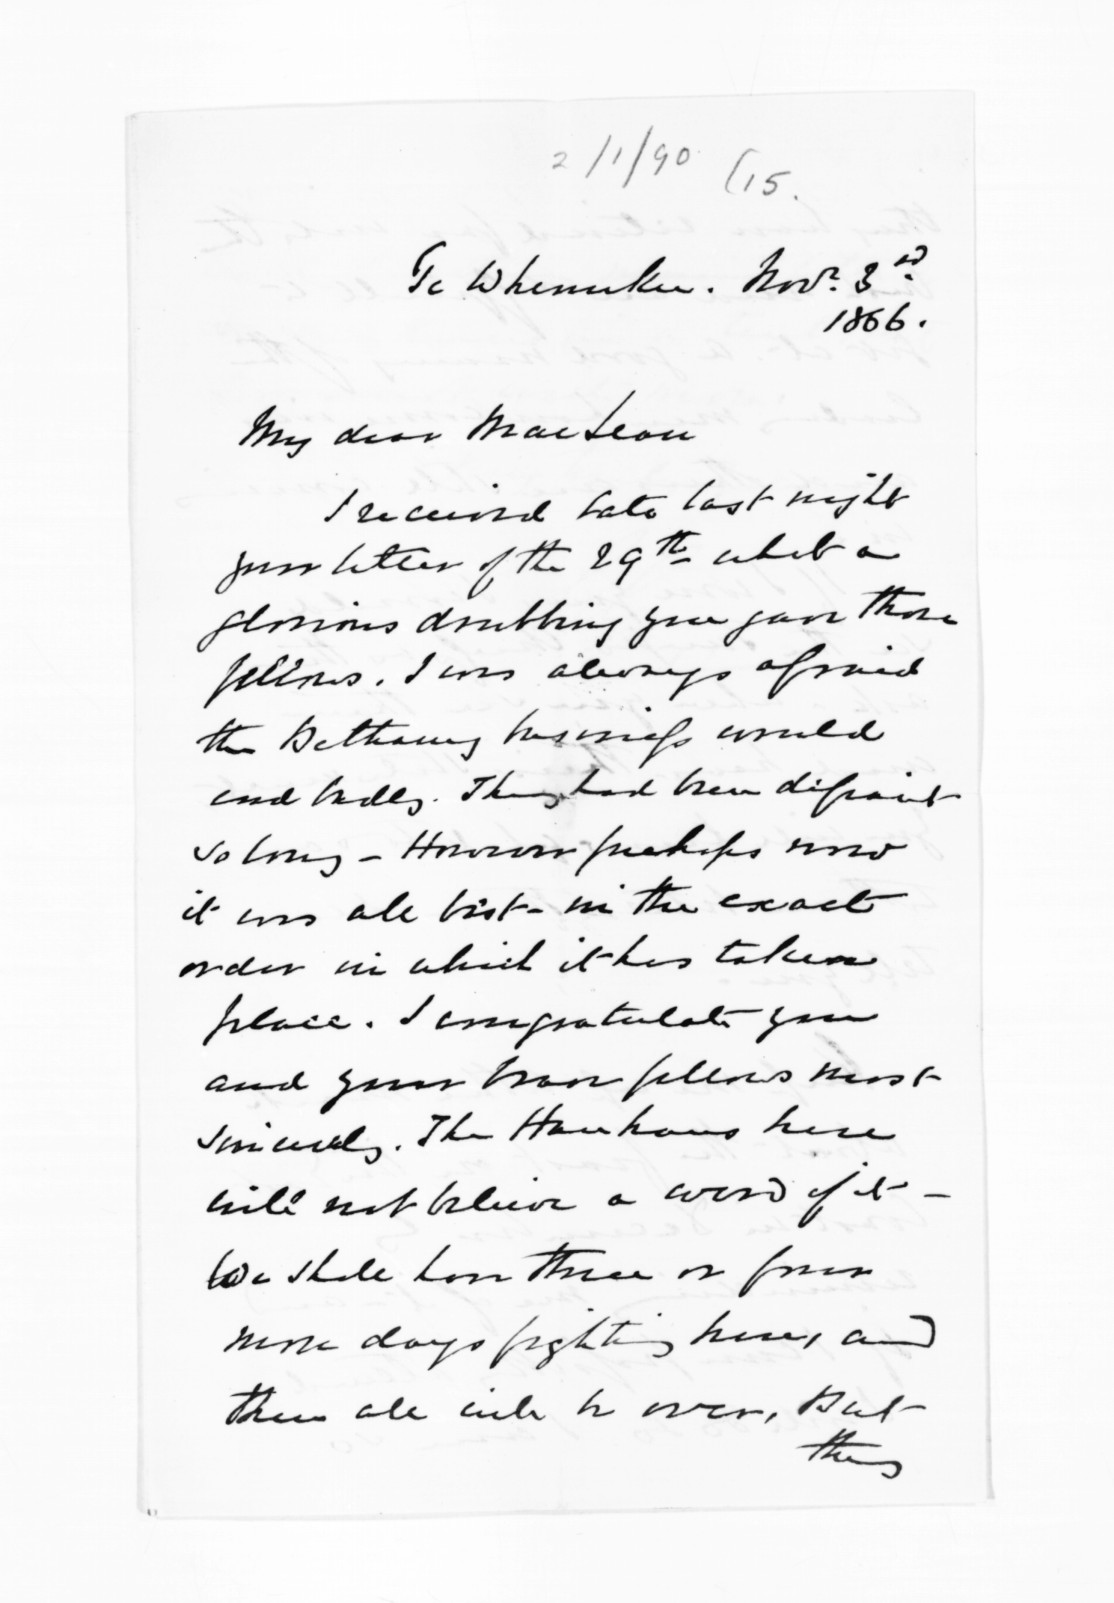 2/1/90 (15.
Te Whenuku. Novr. 3rd
1866.
My dear MacLean
I received late last night
your letter of the 29th what a
glorious drubbing you gave those
fellows. I was always afraid
the Bethany business would
end badly. They had been
so long - However perhaps now
it was all best in the exact
order in which it has taken
place. I congratulate you
and your brave fellows most
sincerely. The Hauhaus here
will not believe a word of it -
We shall have three or four
more days fighting here, and
then all will be over, But
they